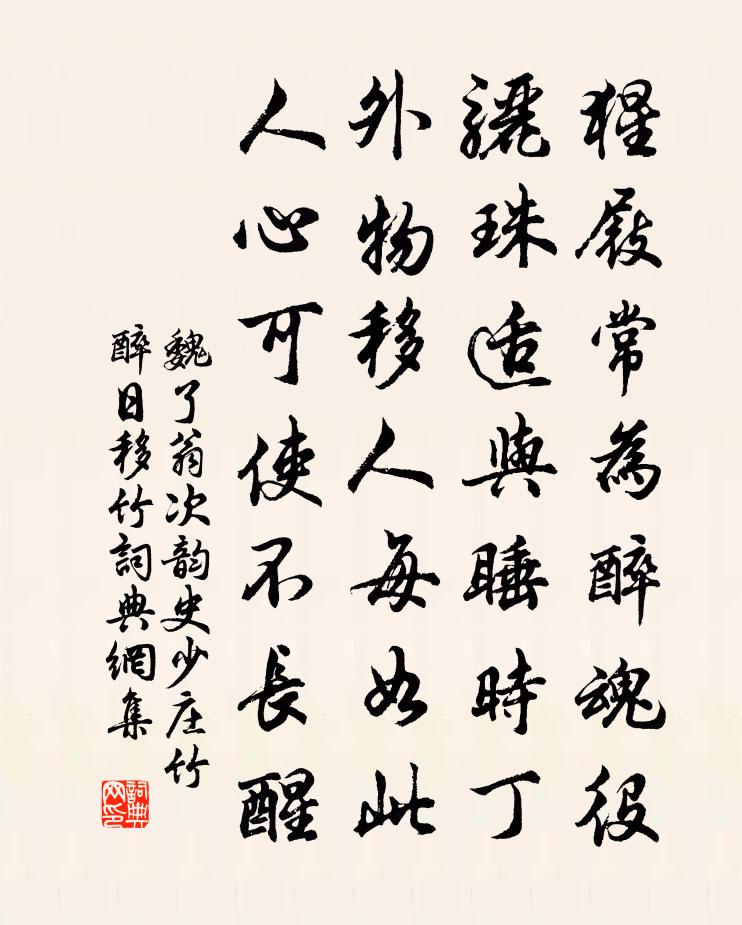 猩屐常為醉魂役
驪珠适與睡時丁
外物移人每如此
人心可使不長醒
魏了翁次韵史少庄竹
醉日移竹詞典網集
詞典网印